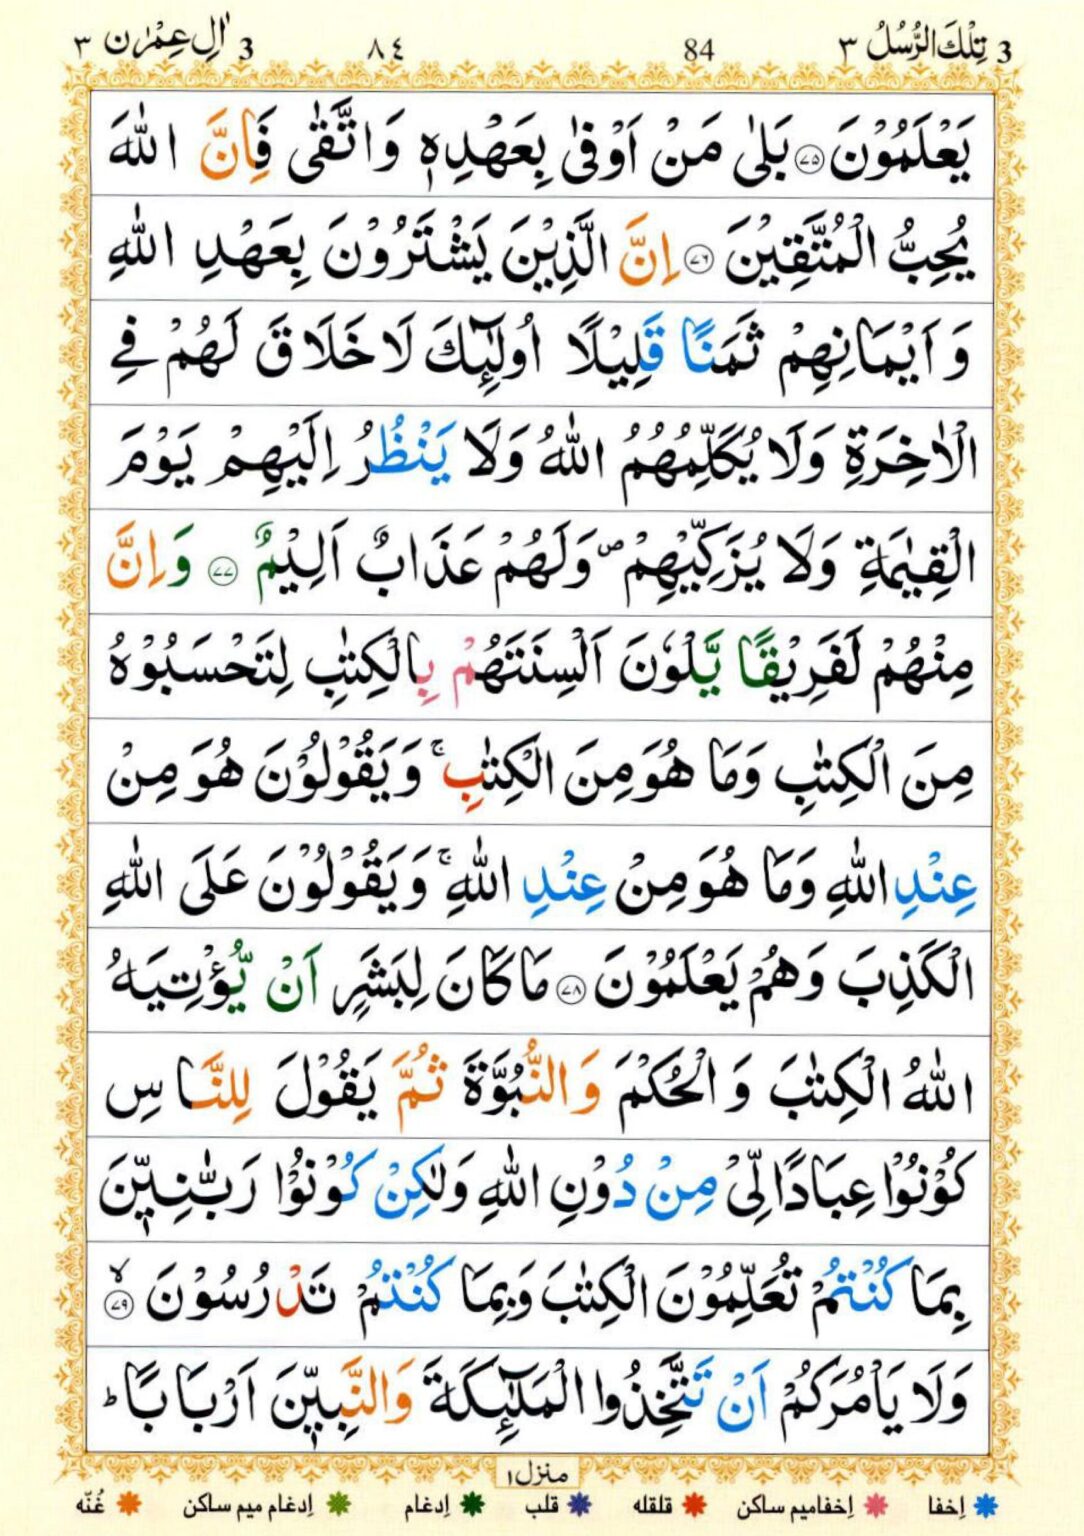 3 تِلْكَ الرُّسُلُ ٣ 84 ٨٤ 3 اٰلِ عِمْرٰن ٣
يَعْلَمُوْنَ ۝٧٥ بَلٰى مَنْ اَوْفٰى بِعَهْدِهٖ وَاتَّقٰى فَاِنَّ اللّٰهَ
يُحِبُّ الْمُتَّقِيْنَ ۝٧٦ اِنَّ الَّذِيْنَ يَشْتَرُوْنَ بِعَهْدِ اللّٰهِ
وَاَيْمَانِهِمْ ثَمَنًا قَلِيْلًا اُولٰٓئِكَ لَا خَلَاقَ لَهُمْ فِي
الْاٰخِرَةِ وَلَا يُكَلِّمُهُمُ اللّٰهُ وَلَا يَنْظُرُ اِلَيْهِمْ يَوْمَ
الْقِيٰمَةِ وَلَا يُزَكِّيْهِمْ ۖ وَلَهُمْ عَذَابٌ اَلِيْمٌ ۝٧٧ وَاِنَّ
مِنْهُمْ لَفَرِيْقًا يَّلْوٗنَ اَلْسِنَتَهُمْ بِالْكِتٰبِ لِتَحْسَبُوْهُ
مِنَ الْكِتٰبِ وَمَا هُوَ مِنَ الْكِتٰبِ ۚ وَيَقُوْلُوْنَ هُوَ مِنْ
عِنْدِ اللّٰهِ وَمَا هُوَ مِنْ عِنْدِ اللّٰهِ ۚ وَيَقُوْلُوْنَ عَلَى اللّٰهِ
الْكَذِبَ وَهُمْ يَعْلَمُوْنَ ۝٧٨ مَا كَانَ لِبَشَرٍ اَنْ يُّؤْتِيَهُ
اللّٰهُ الْكِتٰبَ وَالْحُكْمَ وَالنُّبُوَّةَ ثُمَّ يَقُوْلَ لِلنَّاسِ
كُوْنُوْا عِبَادًا لِّيْ مِنْ دُوْنِ اللّٰهِ وَلٰكِنْ كُوْنُوْا رَبّٰنِيّٖنَ
بِمَا كُنْتُمْ تُعَلِّمُوْنَ الْكِتٰبَ وَبِمَا كُنْتُمْ تَدْرُسُوْنَ ۙ۝٧٩
وَلَا يَاْمُرَكُمْ اَنْ تَتَّخِذُوا الْمَلٰٓئِكَةَ وَالنَّبِيّٖنَ اَرْبَابًا ؕ
منزل ١
اِخفا اِخفامیم ساکن قلقله قلب اِدغام اِدغام میم ساکن غُنّه